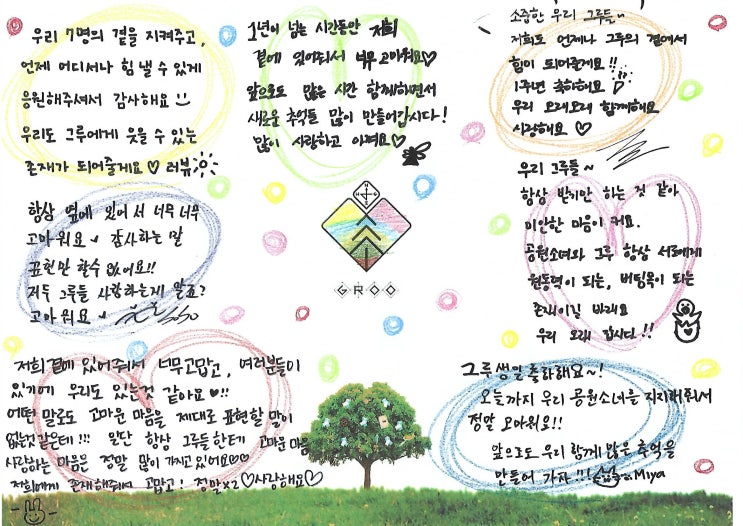 우리 7명의 곁을 지켜주고,
언제 어디서나 힘낼 수 있게
응원해주셔서 감사해요
우리도 그루에게 웃을 수 있는
존재가 되어줄게요♡ 러뷰
1년이 넘는 시간동안 저희
곁에 있어줘서 너무 고마워요♡
앞으로도 많은 시간 함께하면서
새로운 추억들 많이 만들어갑시다!
많이 사랑하고 아껴요♡
소중한 우리 그루들~
저희도 언제나 그루의 곁에서
힘이 되어줄게요!!
1주년 축하해요
우리 오래오래 함께해요
사랑해요♡
항상 옆에 있어서 너무너무
고마워요 감사하는 말
표현만 할수 없어요!!
저두 그루들 사랑하는게 알죠?
고마워요 SoSo
우리 그루들~
항상 받기만 하는 것 같아
미안한 마음이 커요.
공원소녀와 그루 항상 서로에게
원동력이 되는, 버팀목이 되는
존재이길 바래요
우리 오래 갑시다!!
GROO
저희 곁에 있어줘서 너무고맙고, 여러분들이
있기에 우리도 있는것 같아요♥!!
어떤 말로도 고마운 마음을 제대로 표현할 말이
없는것같은데!!! 일단 항상 그루들한테 고마운 마음
사랑하는 마음은 정말 많이 가지고있어요♡♡
저희에게 존재해줘서 고맙고! 정말x2♡사랑해요♡
그루 생일 축하해요~!
오늘까지 우리 공원소녀를 지지해줘서
정말 고마워요!!
앞으로도 우리 함께 많은 추억을
만들어 가자!!! Miya